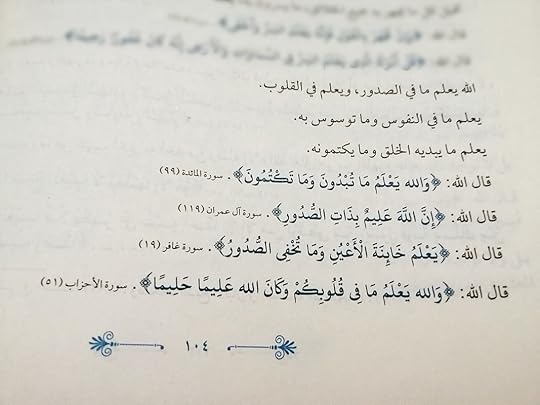 الله يعلم ما في الصدور، ويعلم في القلوب.
يعلم ما في النفوس وما توسوس به.
يعلم ما يبديه الخلق وما يكتمونه.
قال الله: ﴿وَالله يَعْلَمُ مَا تُبْدُونَ وَمَا تَكْتُمُونَ﴾. سورة المائدة (٩٩)
قال الله: ﴿إِنَّ اللَّهَ عَلِيمٌ بِذَاتِ الصُّدُورِ﴾. سورة آل عمران (١١٩)
قال الله: ﴿يَعْلَمُ خَابِنَةَ الْأَعْيُنِ وَمَا تُخْفِى الصُّدُورُ﴾. سورة غافر (١٩)
قال الله: ﴿وَالله يَعْلَمُ مَا فِى قُلُوبِكُمْ وَكَانَ الله عَلِيمًا حَلِيمًا﴾. سورة الأحزاب (٥١)
١٠٤